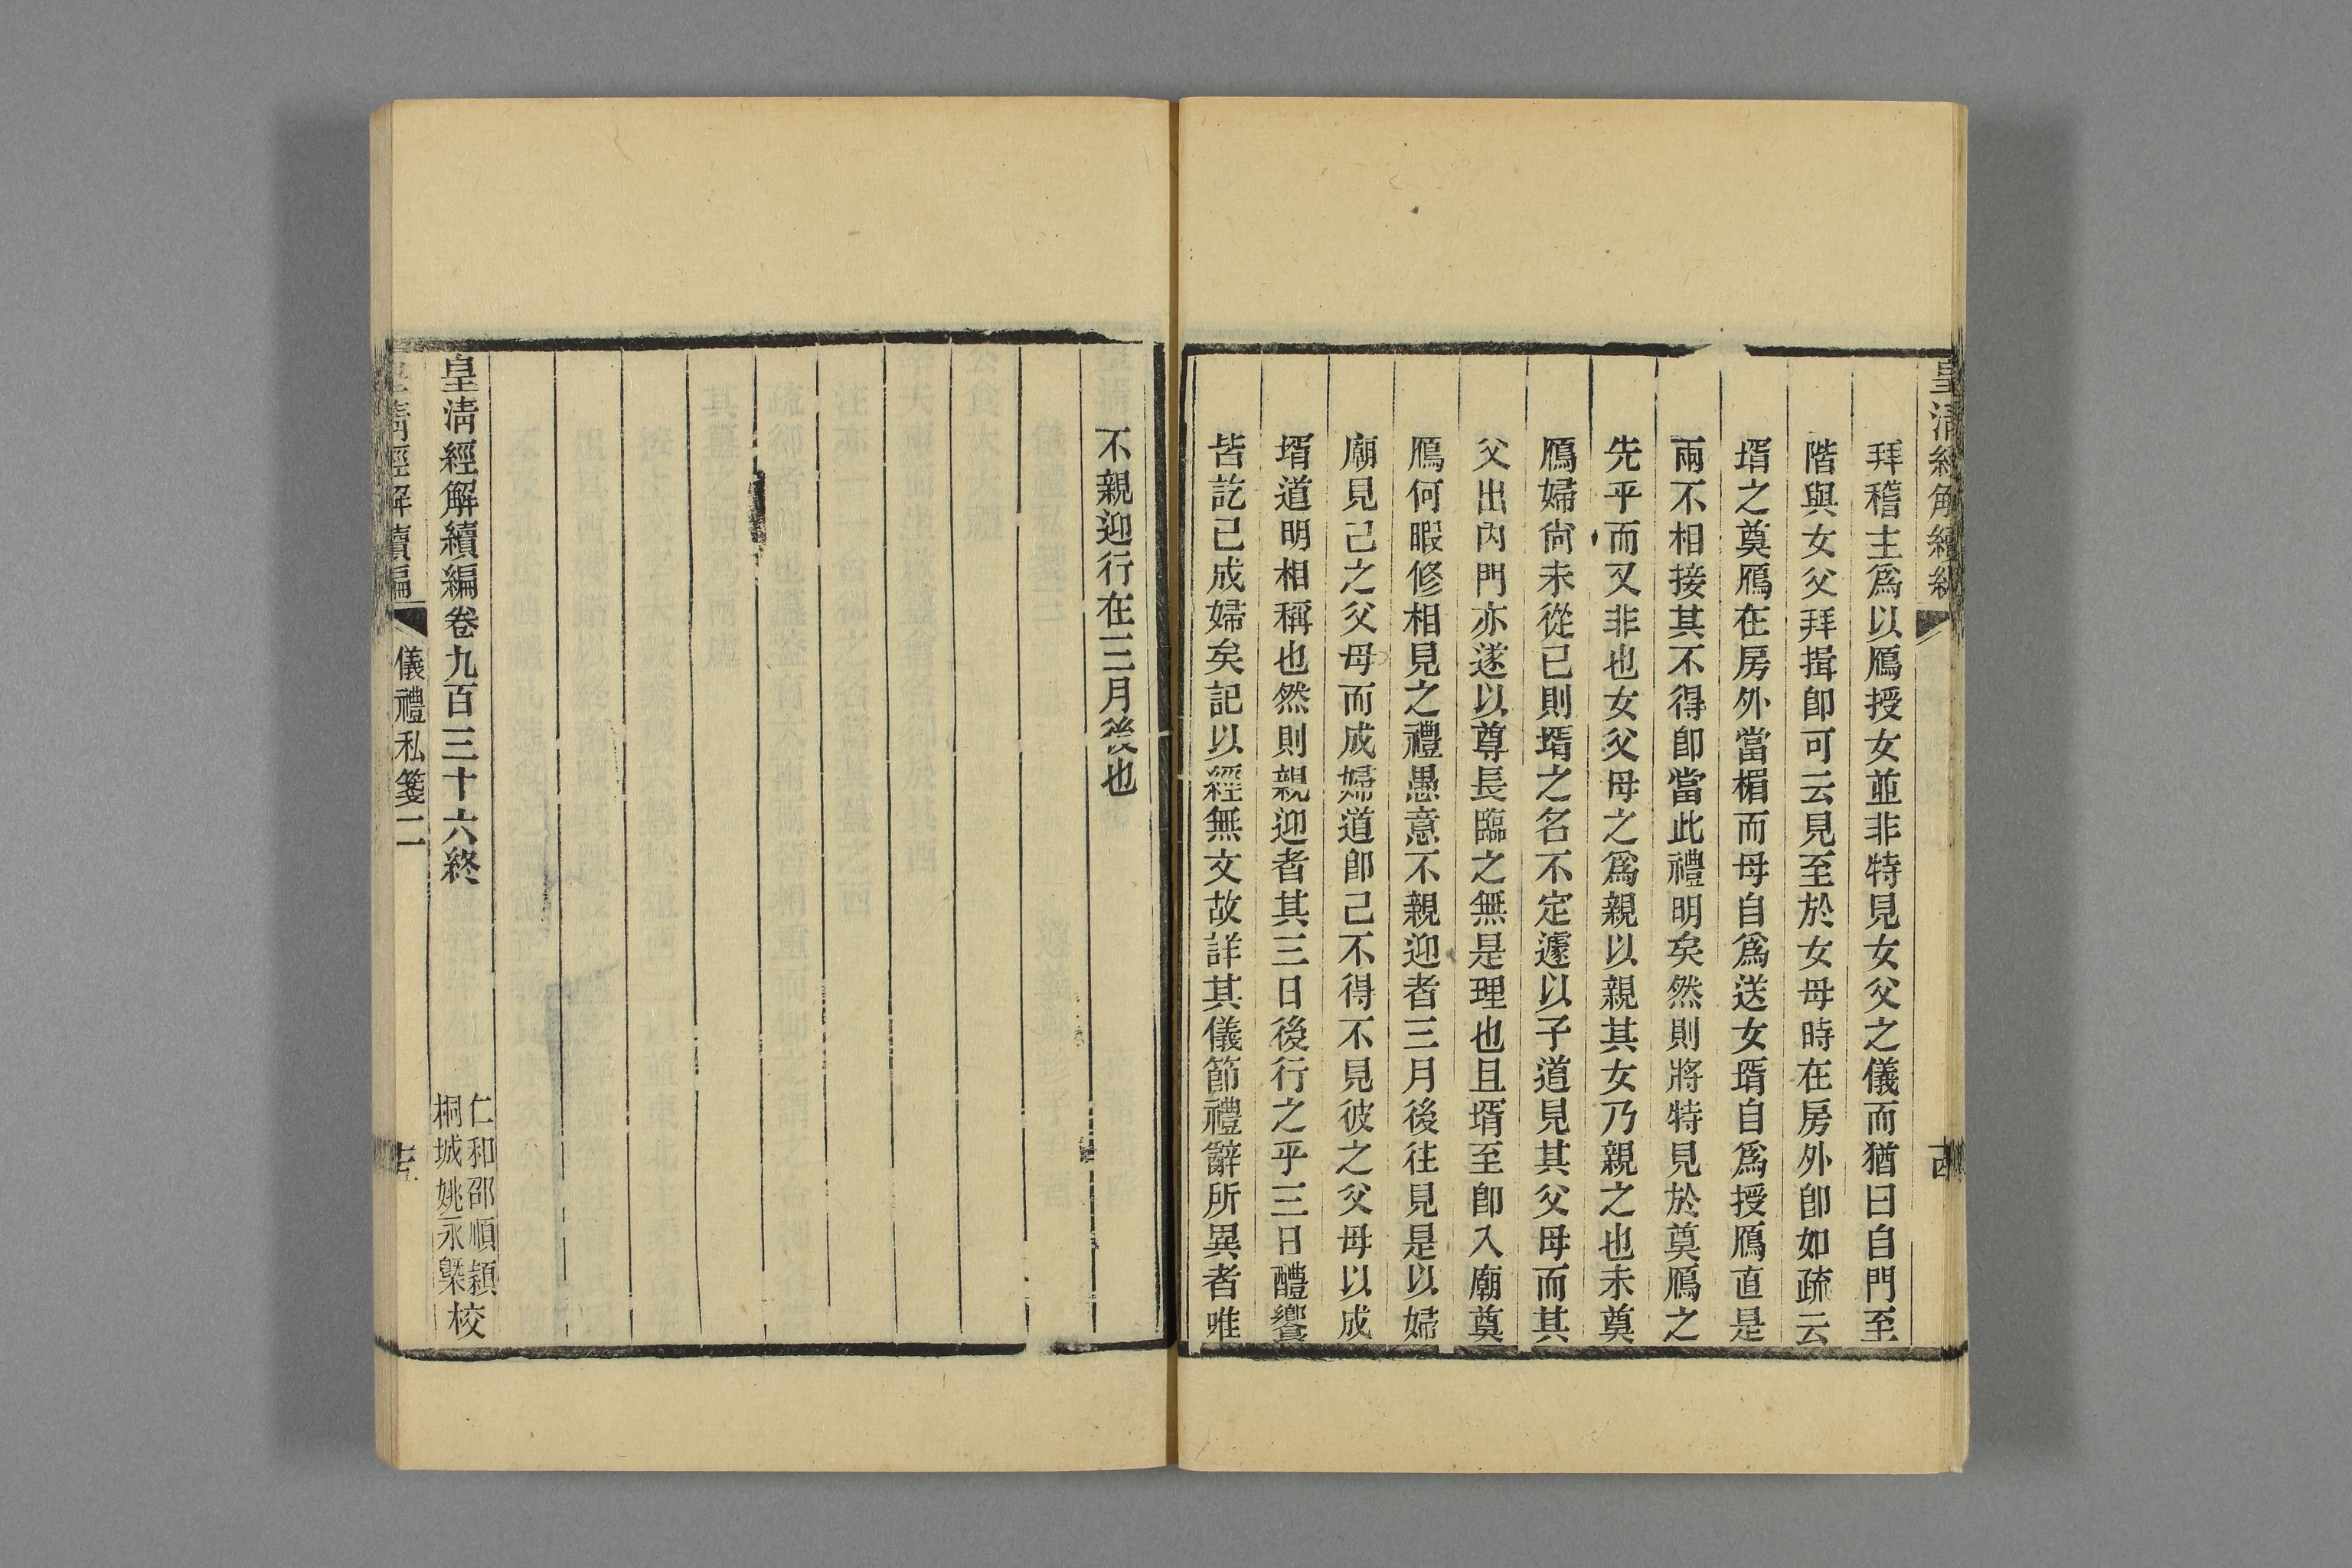 皇清經解續編
拜稽主爲以鴈授女並非特見女父之儀而猶曰自門至
階與女父拜揖卽可云見至於女母時在房外卽如疏云
壻之奠鴈在房外當楣而母自爲送女壻自爲授鴈直是
兩不相接其不得卽當此禮明矣然則將特見於奠鴈之
先乎而又非也女父母之爲親以親其女乃親之也未奠
鴈婦尙未從已則壻之名不定遽以子道見其父母而其
父出內門亦遂以尊長臨之無是理也且壻至卽入廟奠
鴈何暇修相見之禮愚意不親迎者三月後往見是以婦
廟見己之父母而成婦道卽己不得不見彼之父母以成
壻道明相稱也然則親迎者其三日後行之乎三日醴饗
皆訖已成婦矣記以經無文故詳其儀節禮辭所異者唯
不親迎行在三月後也
皇清經解續編卷九百三十六終
仁和邵順頴
桐城姚永檃
校
皇清經解續編
儀禮私箋二